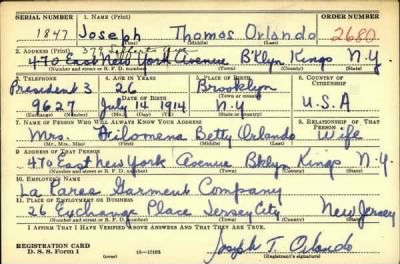 SERIAL NUMBER 1. NAME (Print) ORDER NUMBER
1847 Joseph Thomas Orlando 2680
(First) (Middle) (Last)
2. ADDRESS (Print) 379
470 East New York Avenue B'Klyn Kings N.Y.
(Number and street or R. F. D. number) (Town) (County) (State)
3. TELEPHONE 4. AGE IN YEARS 5. PLACE OF BIRTH 6. COUNTRY OF CITIZENSHIP
President 3 26 Brooklyn
DATE OF BIRTH (Town or county)
9627 July 14 1914 N.Y U.S.A
(Exchange) (Number) (Mo.) (Day) (Yr.) (State or country)
7. NAME OF PERSON WHO WILL ALWAYS KNOW YOUR ADDRESS 8. RELATIONSHIP OF THAT PERSON
Mrs. Filomena Betty Orlando Wife
(Mr., Mrs., Miss) (First) (Middle) (Last)
9. ADDRESS OF THAT PERSON
470 East New York Avenue Bklyn Kings N.Y.
(Number and street or R. F. D. number) (Town) (County) (State)
10. EMPLOYER'S NAME
La Paree Garment Company
11. PLACE OF EMPLOYMENT OR BUSINESS
26 Exchange Place Jersey City New Jersey
(Number and street or R. F. D. number) (Town) (County) (State)
I AFFIRM THAT I HAVE VERIFIED ABOVE ANSWERS AND THAT THEY ARE TRUE.
REGISTRATION CARD
D. S. S. Form 1 Joseph T. Orlando
(Registrant's signature)